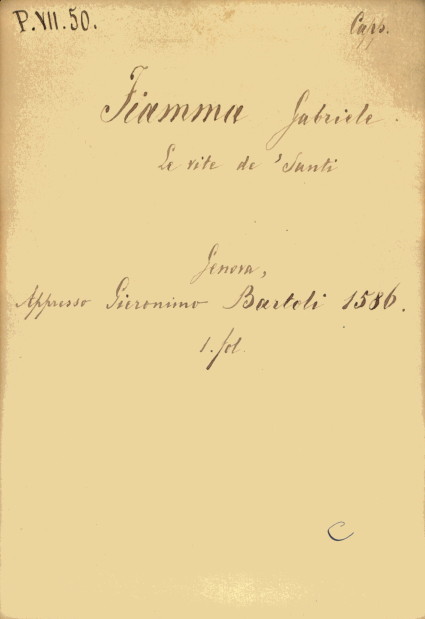 P.VII.50.
Capp.
Fiamma Gabriele.
Le vite de' Santi
Genova,
Appresso Gieronimo Bartoli 1586.
1. fol.
C